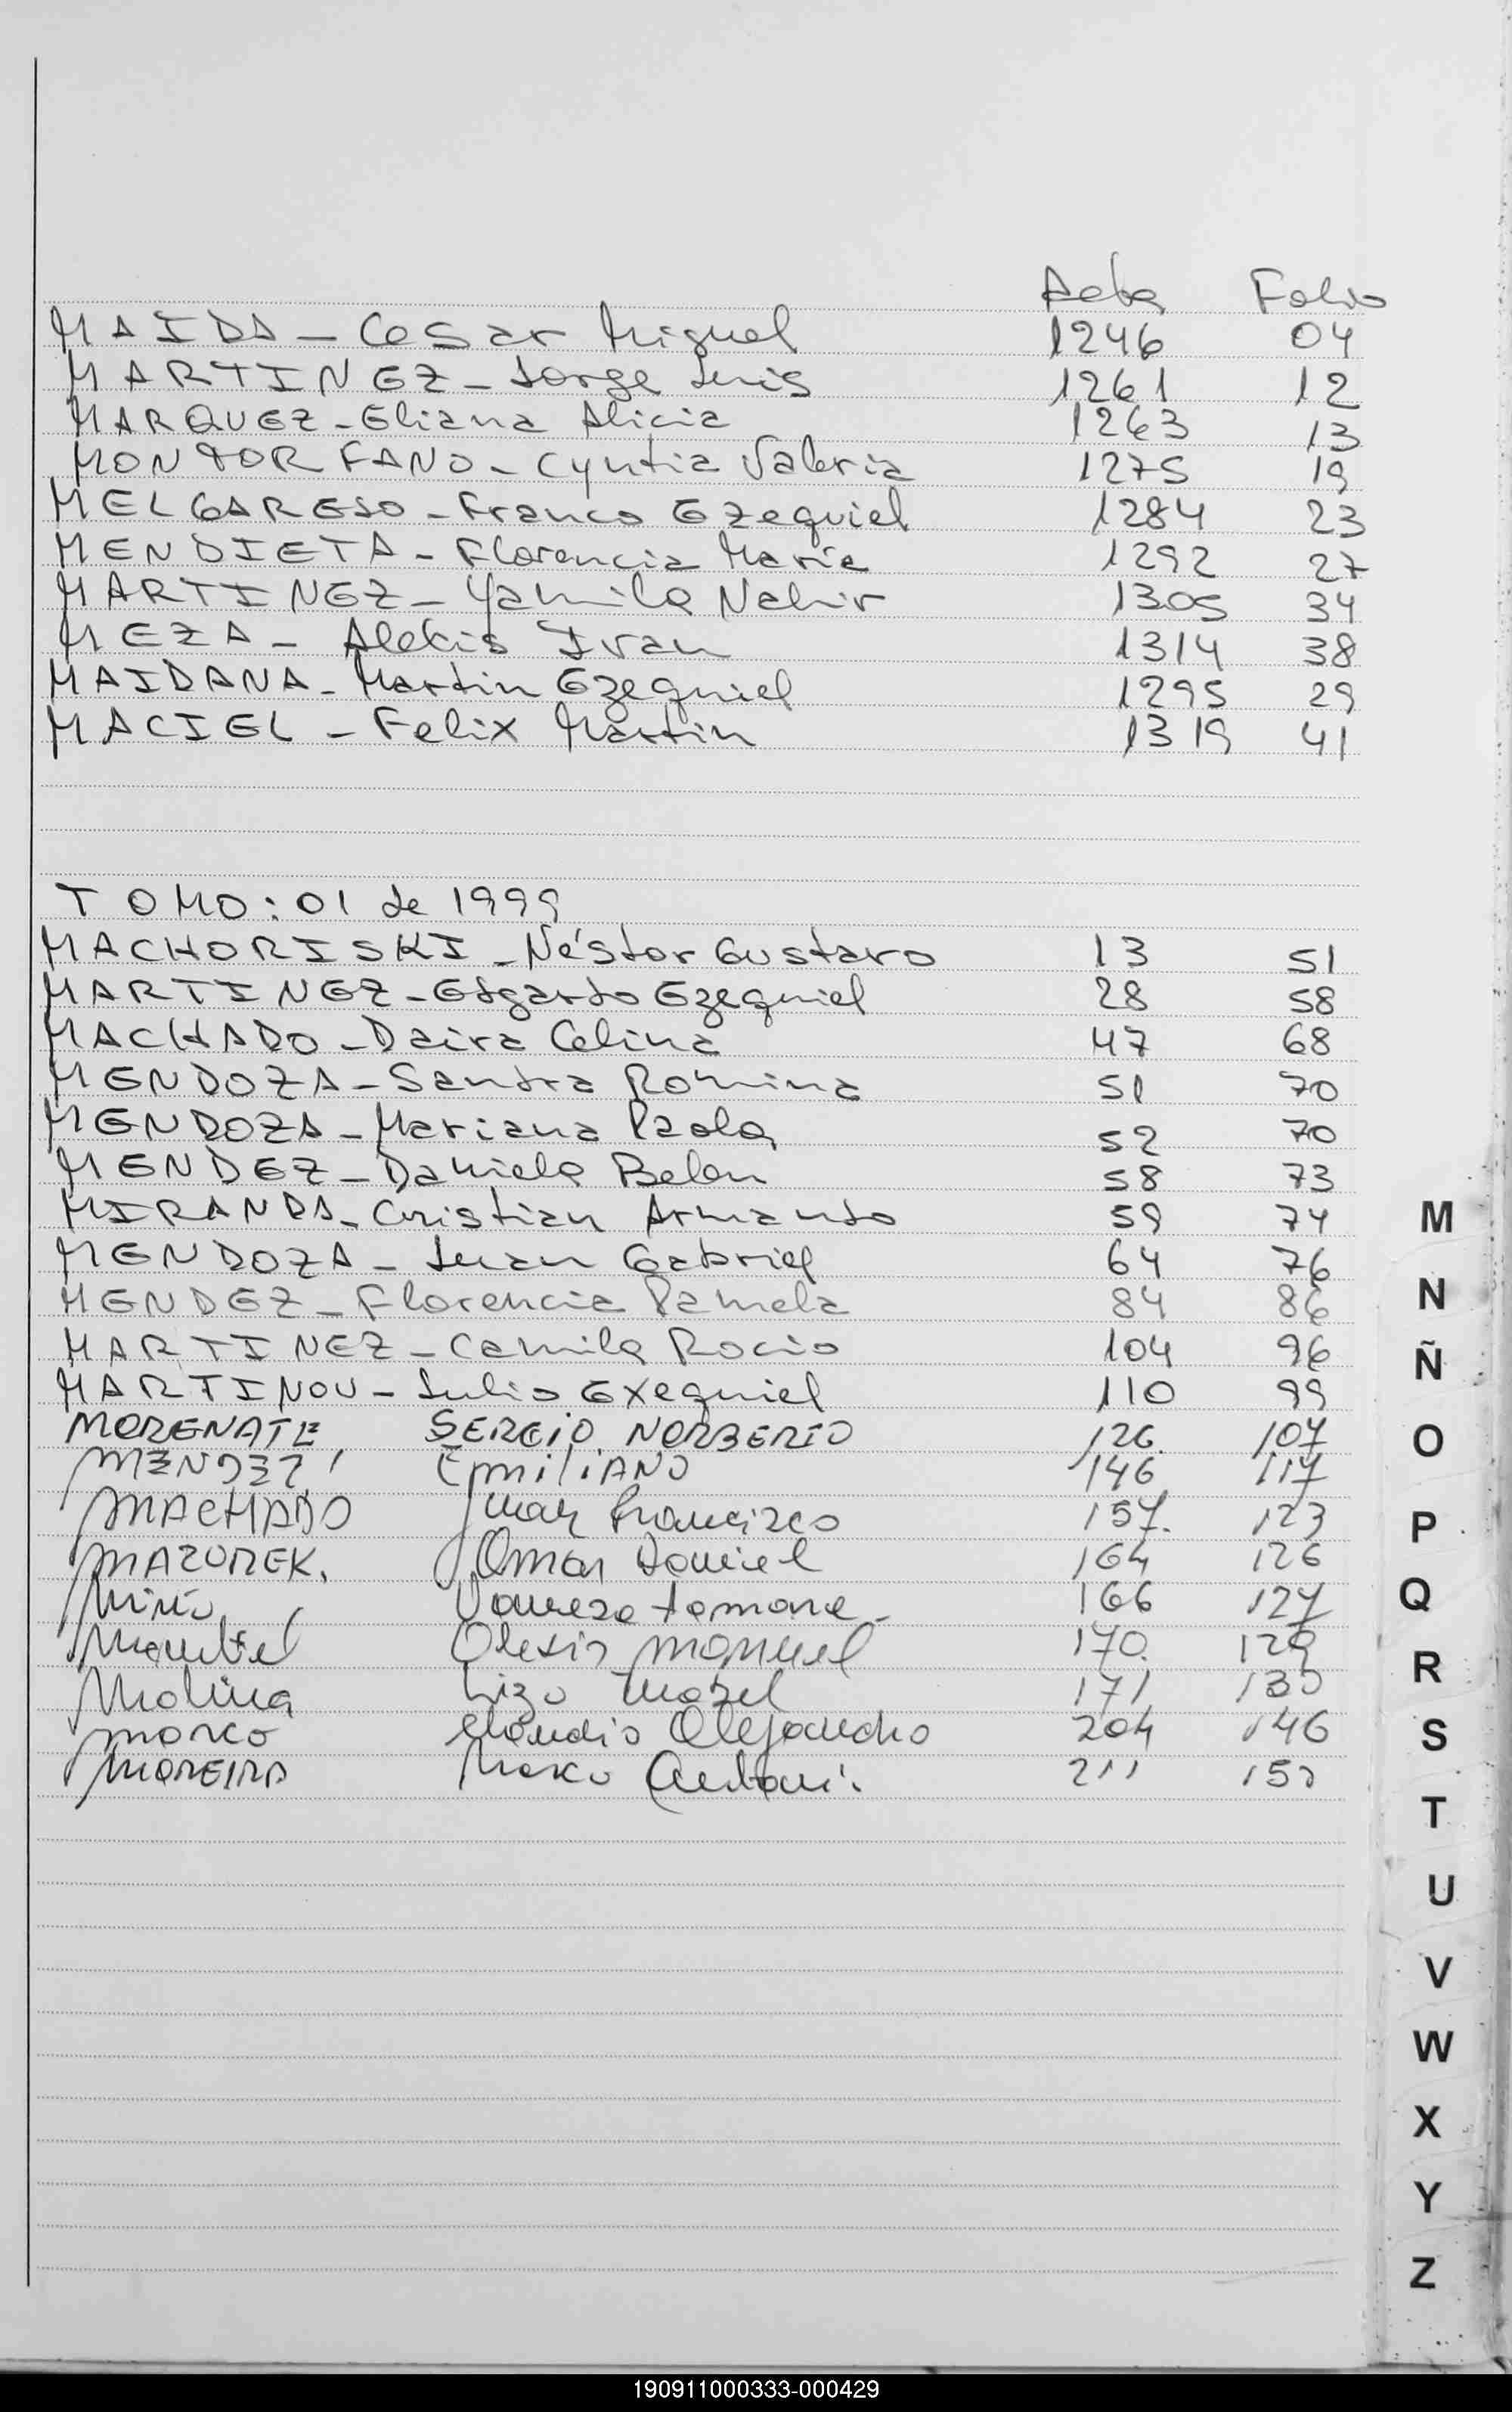 Acta Folio
MAIDA - Cesar Miguel 1246 04
MARTINEZ - Jorge Luis 1261 12
MARQUEZ - Eliana Alicia 1263 13
MONTORFANO - Cyntia Valeria 1275 19
MELGAREJO - Franco Ezequiel 1284 23
MENDIETA - Florencia María 1292 27
MARTINEZ - Yamila Nahir 1305 34
MEZA - Alekis Ivan 1314 38
MAIDANA - Martin Ezequiel 1295 29
MACIEL - Felix Martin 1319 41
TOMO: 01 de 1999
MACHORISKI - Néstor Gustavo 13 51
MARTINEZ - Edgardo Ezequiel 28 58
MACHADO - Daira Celina 47 68
MENDOZA - Sandra Romina 51 70
MENDOZA - Mariana Paola 52 70
MENDEZ - Daniela Belen 58 73
MIRANDA - Cristian Armando 59 74
MENDOZA - Juan Gabriel 64 76
MENDEZ - Florencia Pamela 84 86
MARTINEZ - Camila Rocio 104 96
MARTINOU - Julio Exequiel 110 99
MORENATE SERGIO NORBERTO 126 107
MENDEZ EMILIANO 146 117
MACHADO Juan Francisco 157 123
MAZUREK. Omar Daniel 164 126
Miño 166 127
Alexis Manuel 170 129
Molina 171 130
Claudio Alejandro 204 146
MOREIRA 211 150
M
N
Ñ
O
P
Q
R
S
T
U
V
W
X
Y
Z
190911000333-000429